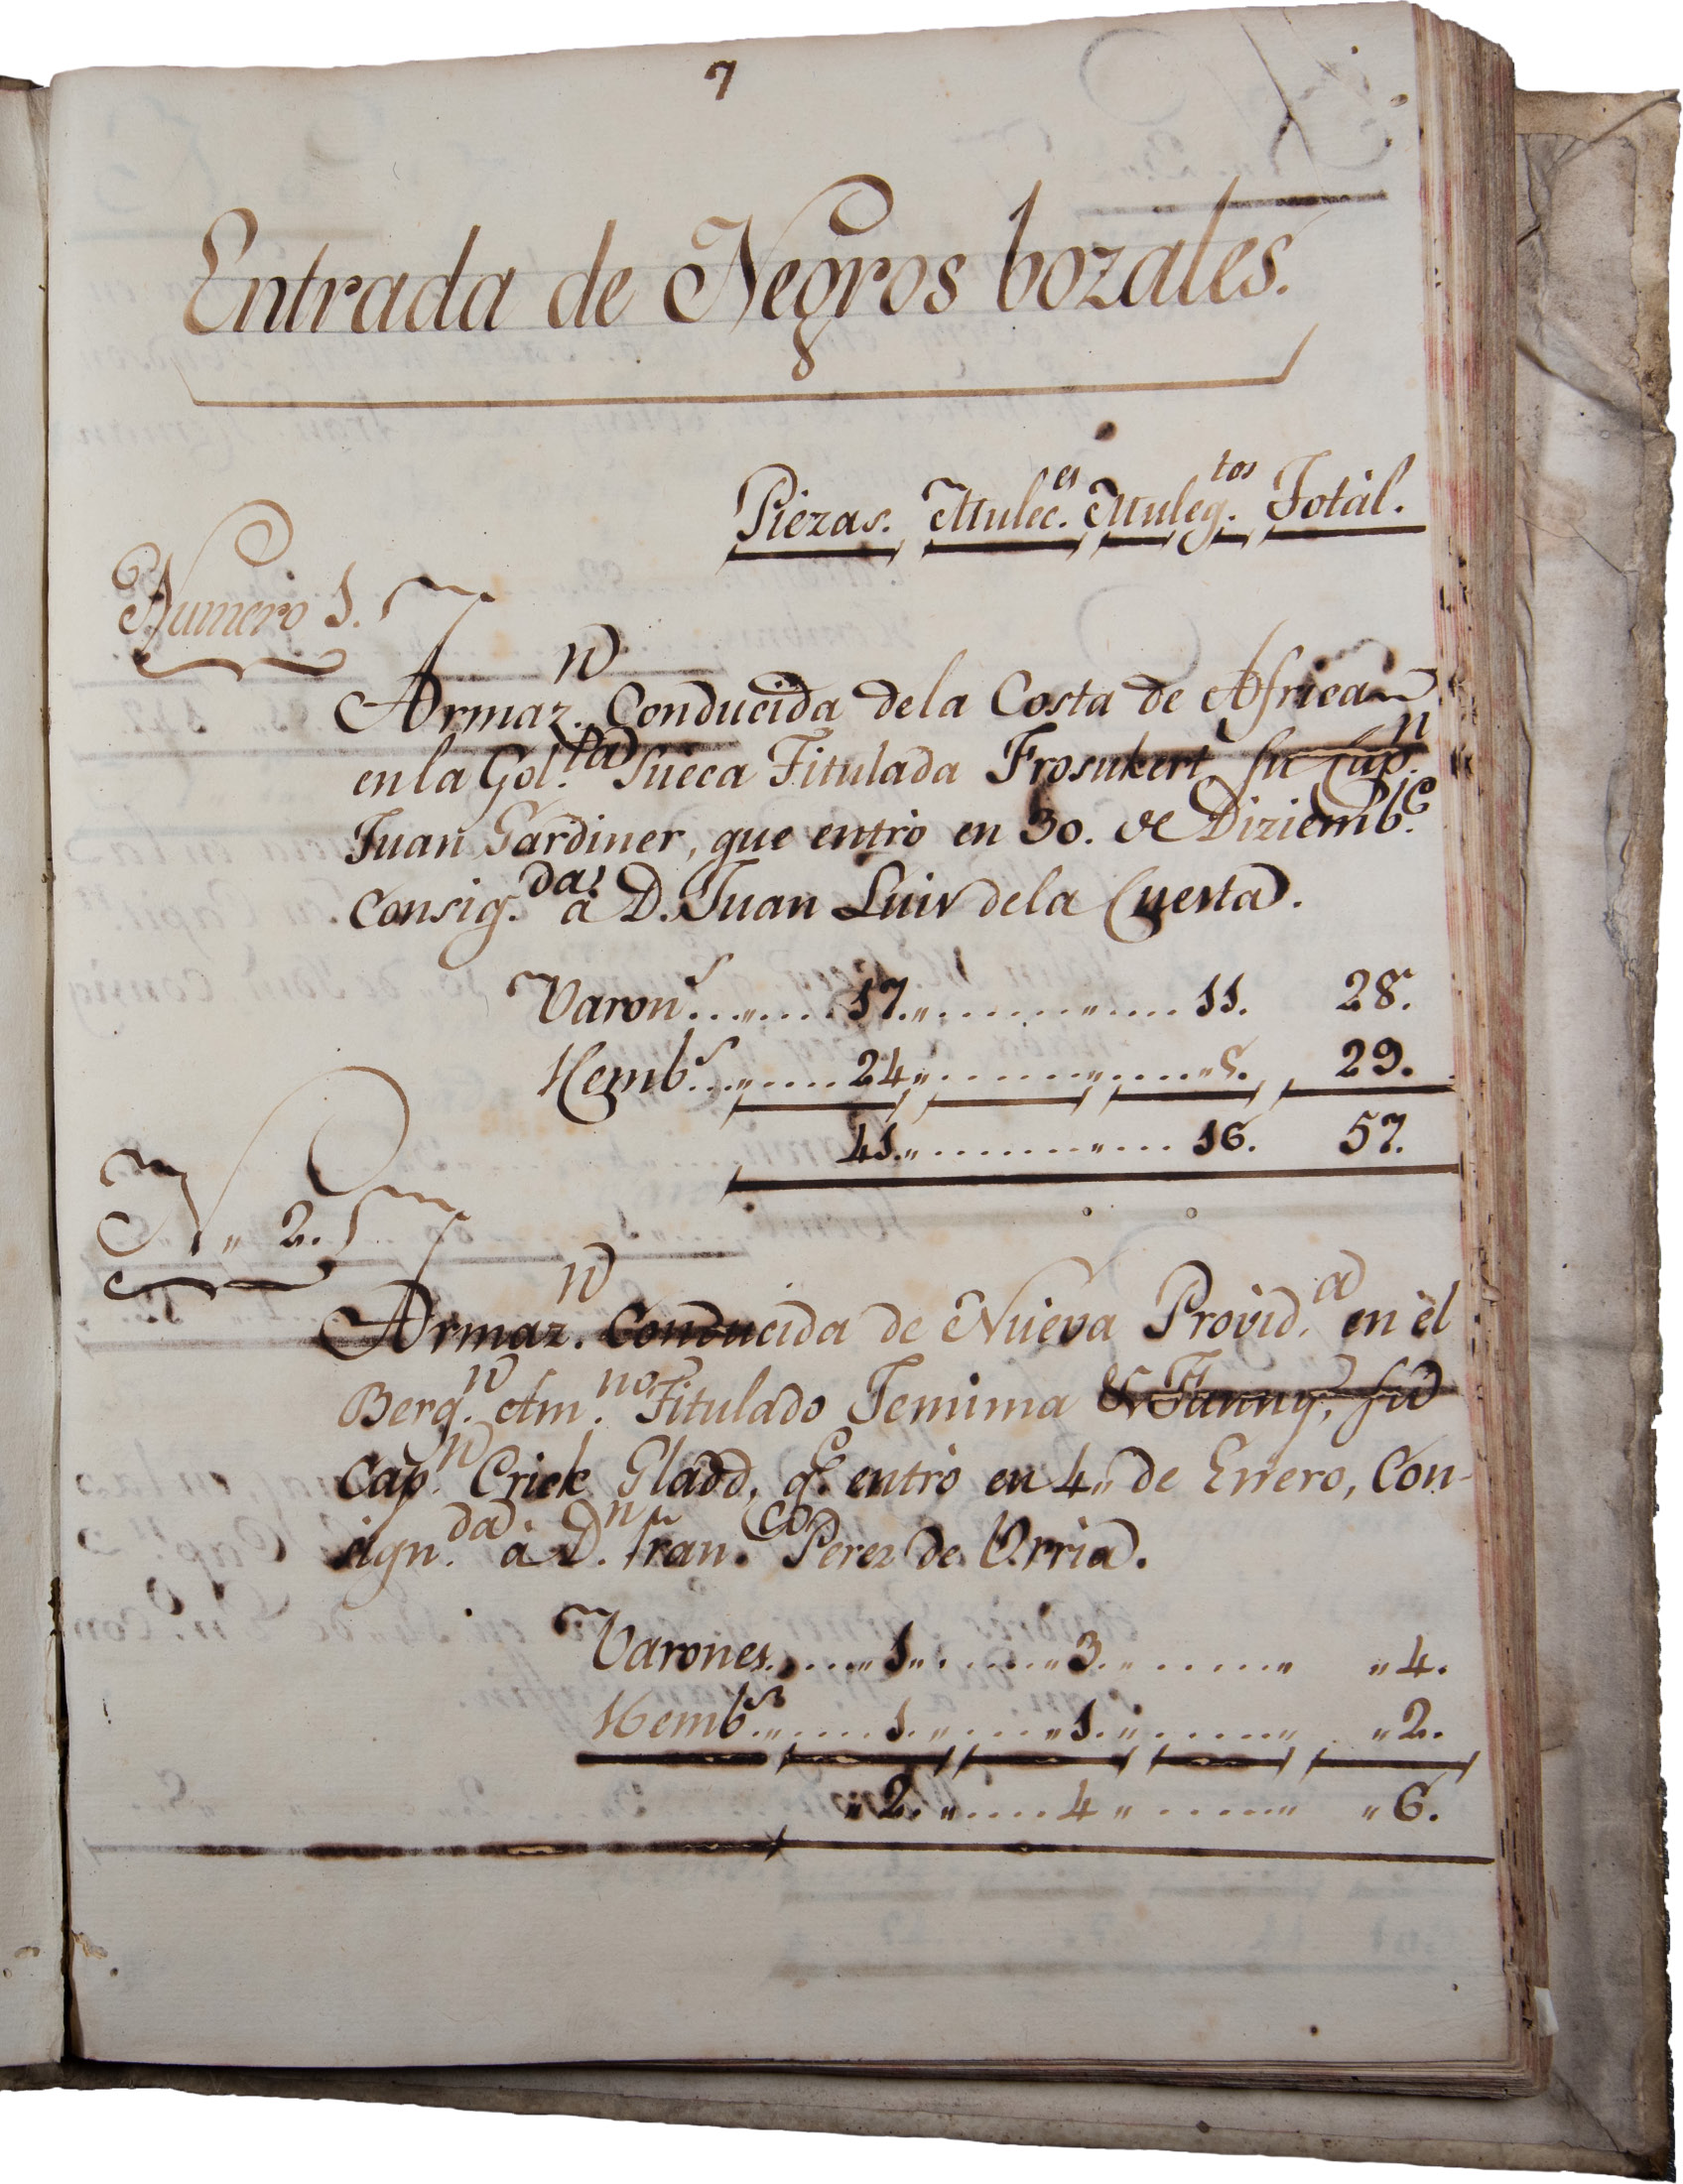 7
Entrada de Negros bozales.
Piezas. Mulec.es Muleq.tos Total.
Numero 1.
Armaz.n Conducida dela Costa de Africa
en la Gol.ta Sueca Titulada Frosukert su Cap.n
Juan Gardiner, que entrò en 30. de Diziemb.e
Consig.da à D. Juan Luis dela Cuesta.
Varon.s...„....17.„.......„....11. 28.
Hemb.s...„....24„.......„....„5. 29.
41.„.........„...16. 57.
N„ 2.
Armaz.n Conducida de Nueva Provid.a en el
Berg.n Am.no Titulado Jemima & Fanny, su
Cap.n Crick Gladd, q.e entrò en 4„ de Enero, Con-
sign.da à D.n Fran.co Perez de Urria.
Varones.....„1„......„3.„......„ „4.
Hemb.s„.....1.„....„1.„......„ „2.
„2.„.....4„......„ „6.